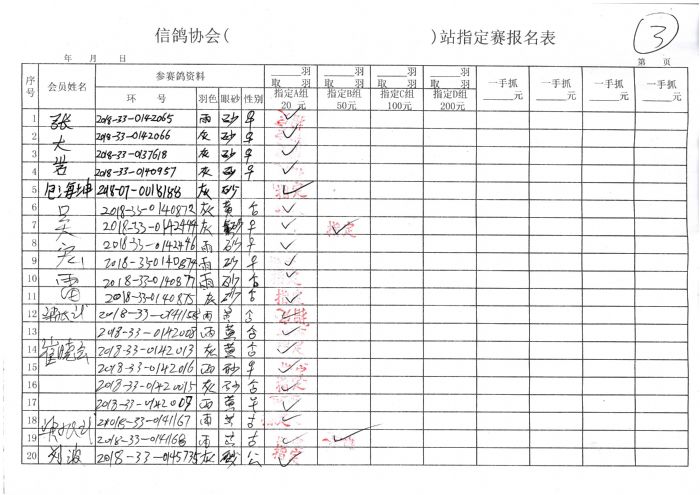 信鸽协会( )站指定赛报名表
3
年 月 日 第 页
序号 会员姓名 参赛鸽资料 ____羽 取____羽 ____羽 取____羽 ____羽 取____羽 ____羽 取____羽 一手抓 ____元 一手抓 ____元 一手抓 ____元 一手抓 ____元
环 号 羽色 眼砂 性别 指定A组 20 元 指定B组 50元 指定C组 100元 指定D组 200元
1 张 2018-33-0142065 雨 砂 ✓
2 大 2018-33-0142066 灰 砂 ✓
3 岩 2018-33-0137618 灰 砂 ✓
4 2018-33-0140957 灰 砂 ✓
5 2018-07-0018188 灰 砂 指定 ✓
6 吴 2018-33-0140872 灰 黄 ✓
7 2018-33-0142444 灰 砂 ✓ 指定 ✓
8 宏 2018-33-0142446 雨 砂 ✓
9 2018-33-0140874 雨 砂 ✓
10 雷 2018-33-0140877 雨 砂 ✓
11 2018-33-0140875 灰 砂 指定 ✓
12 2018-33-0141158 雨 黄 ✓
13 2018-33-0142008 雨 黄 ✓
14 2018-33-0142013 灰 黄 ✓
15 2018-33-0142016 砂 ✓
16 2018-33-0142015 灰 砂 ✓
17 2018-33-0142007 黄 ✓
18 2018-33-0141167 雨 ✓
19 2018-33-0141168 雨 ✓ ✓
20 刘波 2018-33-0145735 灰 砂 公 指定 ✓